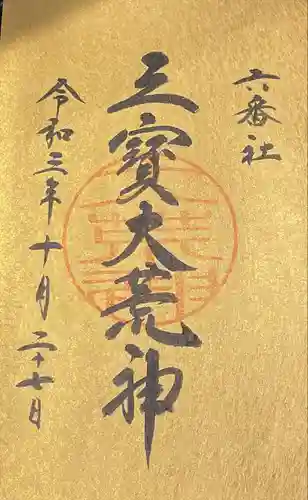 六番社
三寳大荒神
令和三年十月二十七日